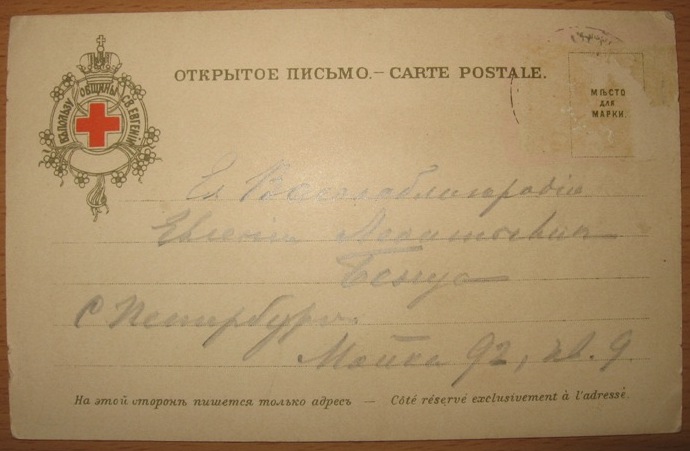 ОТКРЫТОЕ ПИСЬМО.— CARTE POSTALE.
ВЪ ПОЛЬЗУ ОБЩИНЫ СВ. ЕВГЕНІИ
МѢСТО
ДЛЯ
МАРКИ.
Ея Высокоблагородію
Евгеніи
Бенуа
С Петербургъ.
Мойка 92, кв. 9.
На этой сторонѣ пишется только адресъ — Côté réservé exclusivement à l'adresse.